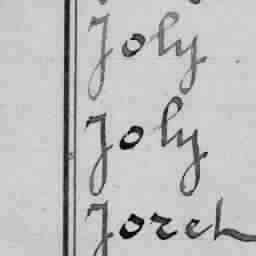 Joly
Joly
Jorel